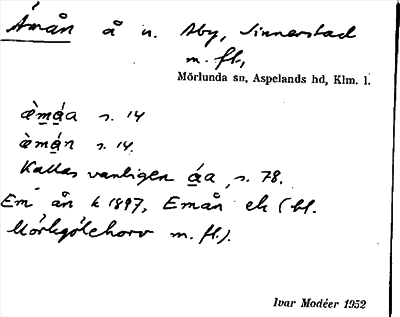 Åmån å n. Åby, Sinnerstad
m. fl.,
Mörlunda sn, Aspelands hd, Klm. l.
æ̀má̱a s. 14
æ̀má̱n s. 14.
Kallas vanligen á̱a, s. 78.
Em ån k 1897, Emån ek (bl.
m. fl.).
Ivar Modéer 1952